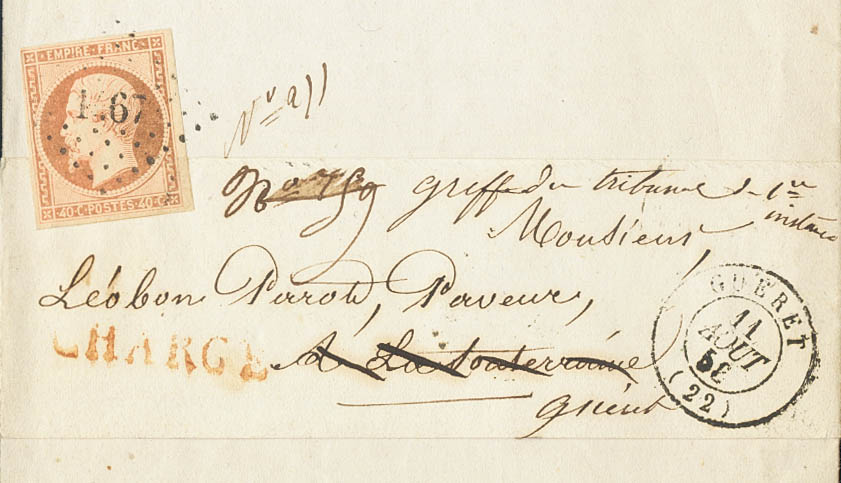 EMPIRE FRANC
1 67
40·C·POSTES·40·C
greffe du tribunal de 1re
instance
Monsieur,
Léobon Parot, Paveur,
CHARGÉ
A La Souterraine
Guéret
GUÉRET
11
AOUT
(22)